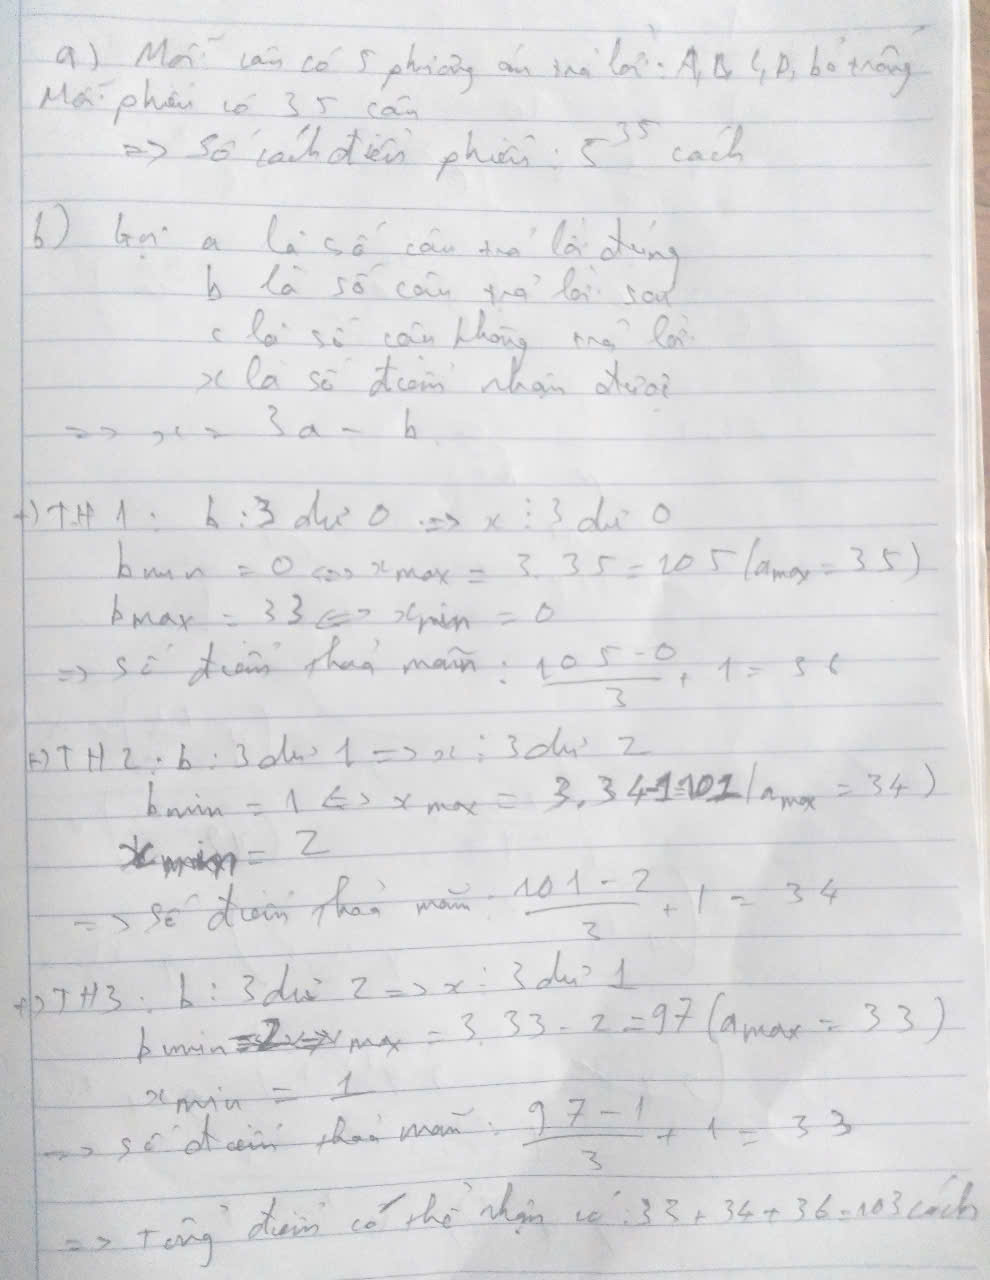 a) Mỗi câu có 5 phương án trả lời: A, B, C, D, bỏ trống
Mỗi phiếu có 35 câu
=> Số cách điền phiếu: 5^35 cách
b) Gọi a là số câu trả lời đúng
b là số câu trả lời sai
c là số câu không trả lời
x là số điểm nhận được
=> x = 3a - b
+) TH1: b : 3 dư 0 => x : 3 dư 0
bmin = 0 <=> xmax = 3.35 = 105 (amax = 35)
bmax = 33 <=> xmin = 0
=> số điểm thoả mãn: (105 - 0)/3 + 1 = 36
+) TH2: b : 3 dư 1 => x : 3 dư 2
bmin = 1 <=> xmax = 3.34-1=101 (amax = 34)
xmin = 2
=> số điểm thoả mãn: (101 - 2)/3 + 1 = 34
+) TH3: b : 3 dư 2 => x : 3 dư 1
bmin = 2 <=> xmax = 3.33 - 2 = 97 (amax = 33)
xmin = 1
=> số điểm thoả mãn: (97 - 1)/3 + 1 = 33
=> Tổng điểm có thể nhận có: 33 + 34 + 36 = 103 cách